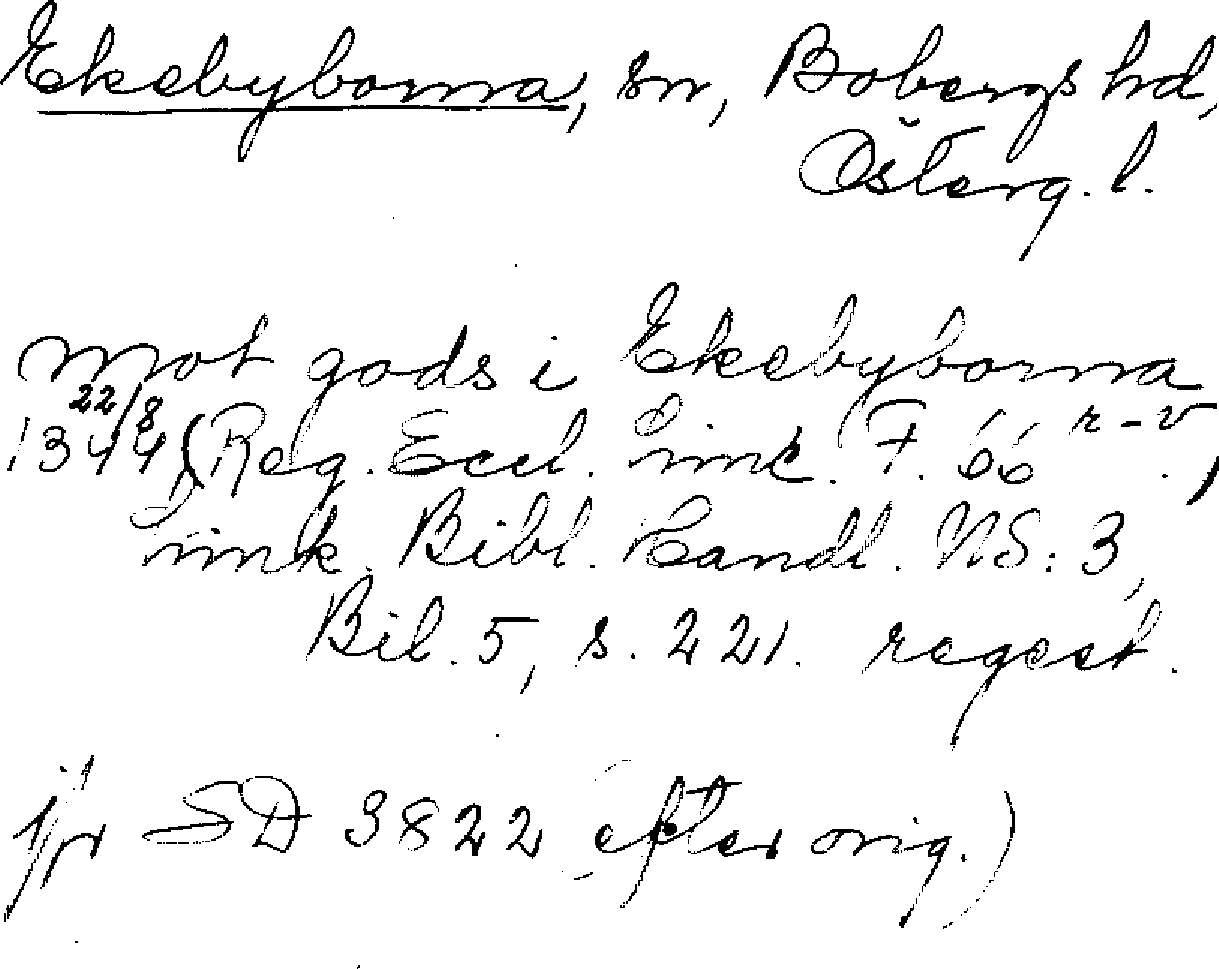 Ekebyborna, sn, Bobergs hd,
Österg. l.
mot gods i Ekebyborna
22/8 1344 (Reg. Eccl. Linc. F. 66 r-v.,
Link. Bibl. Handl. NS: 3,
Bil. 5, s. 221. regest.
jfr SD 3822 efter orig.)